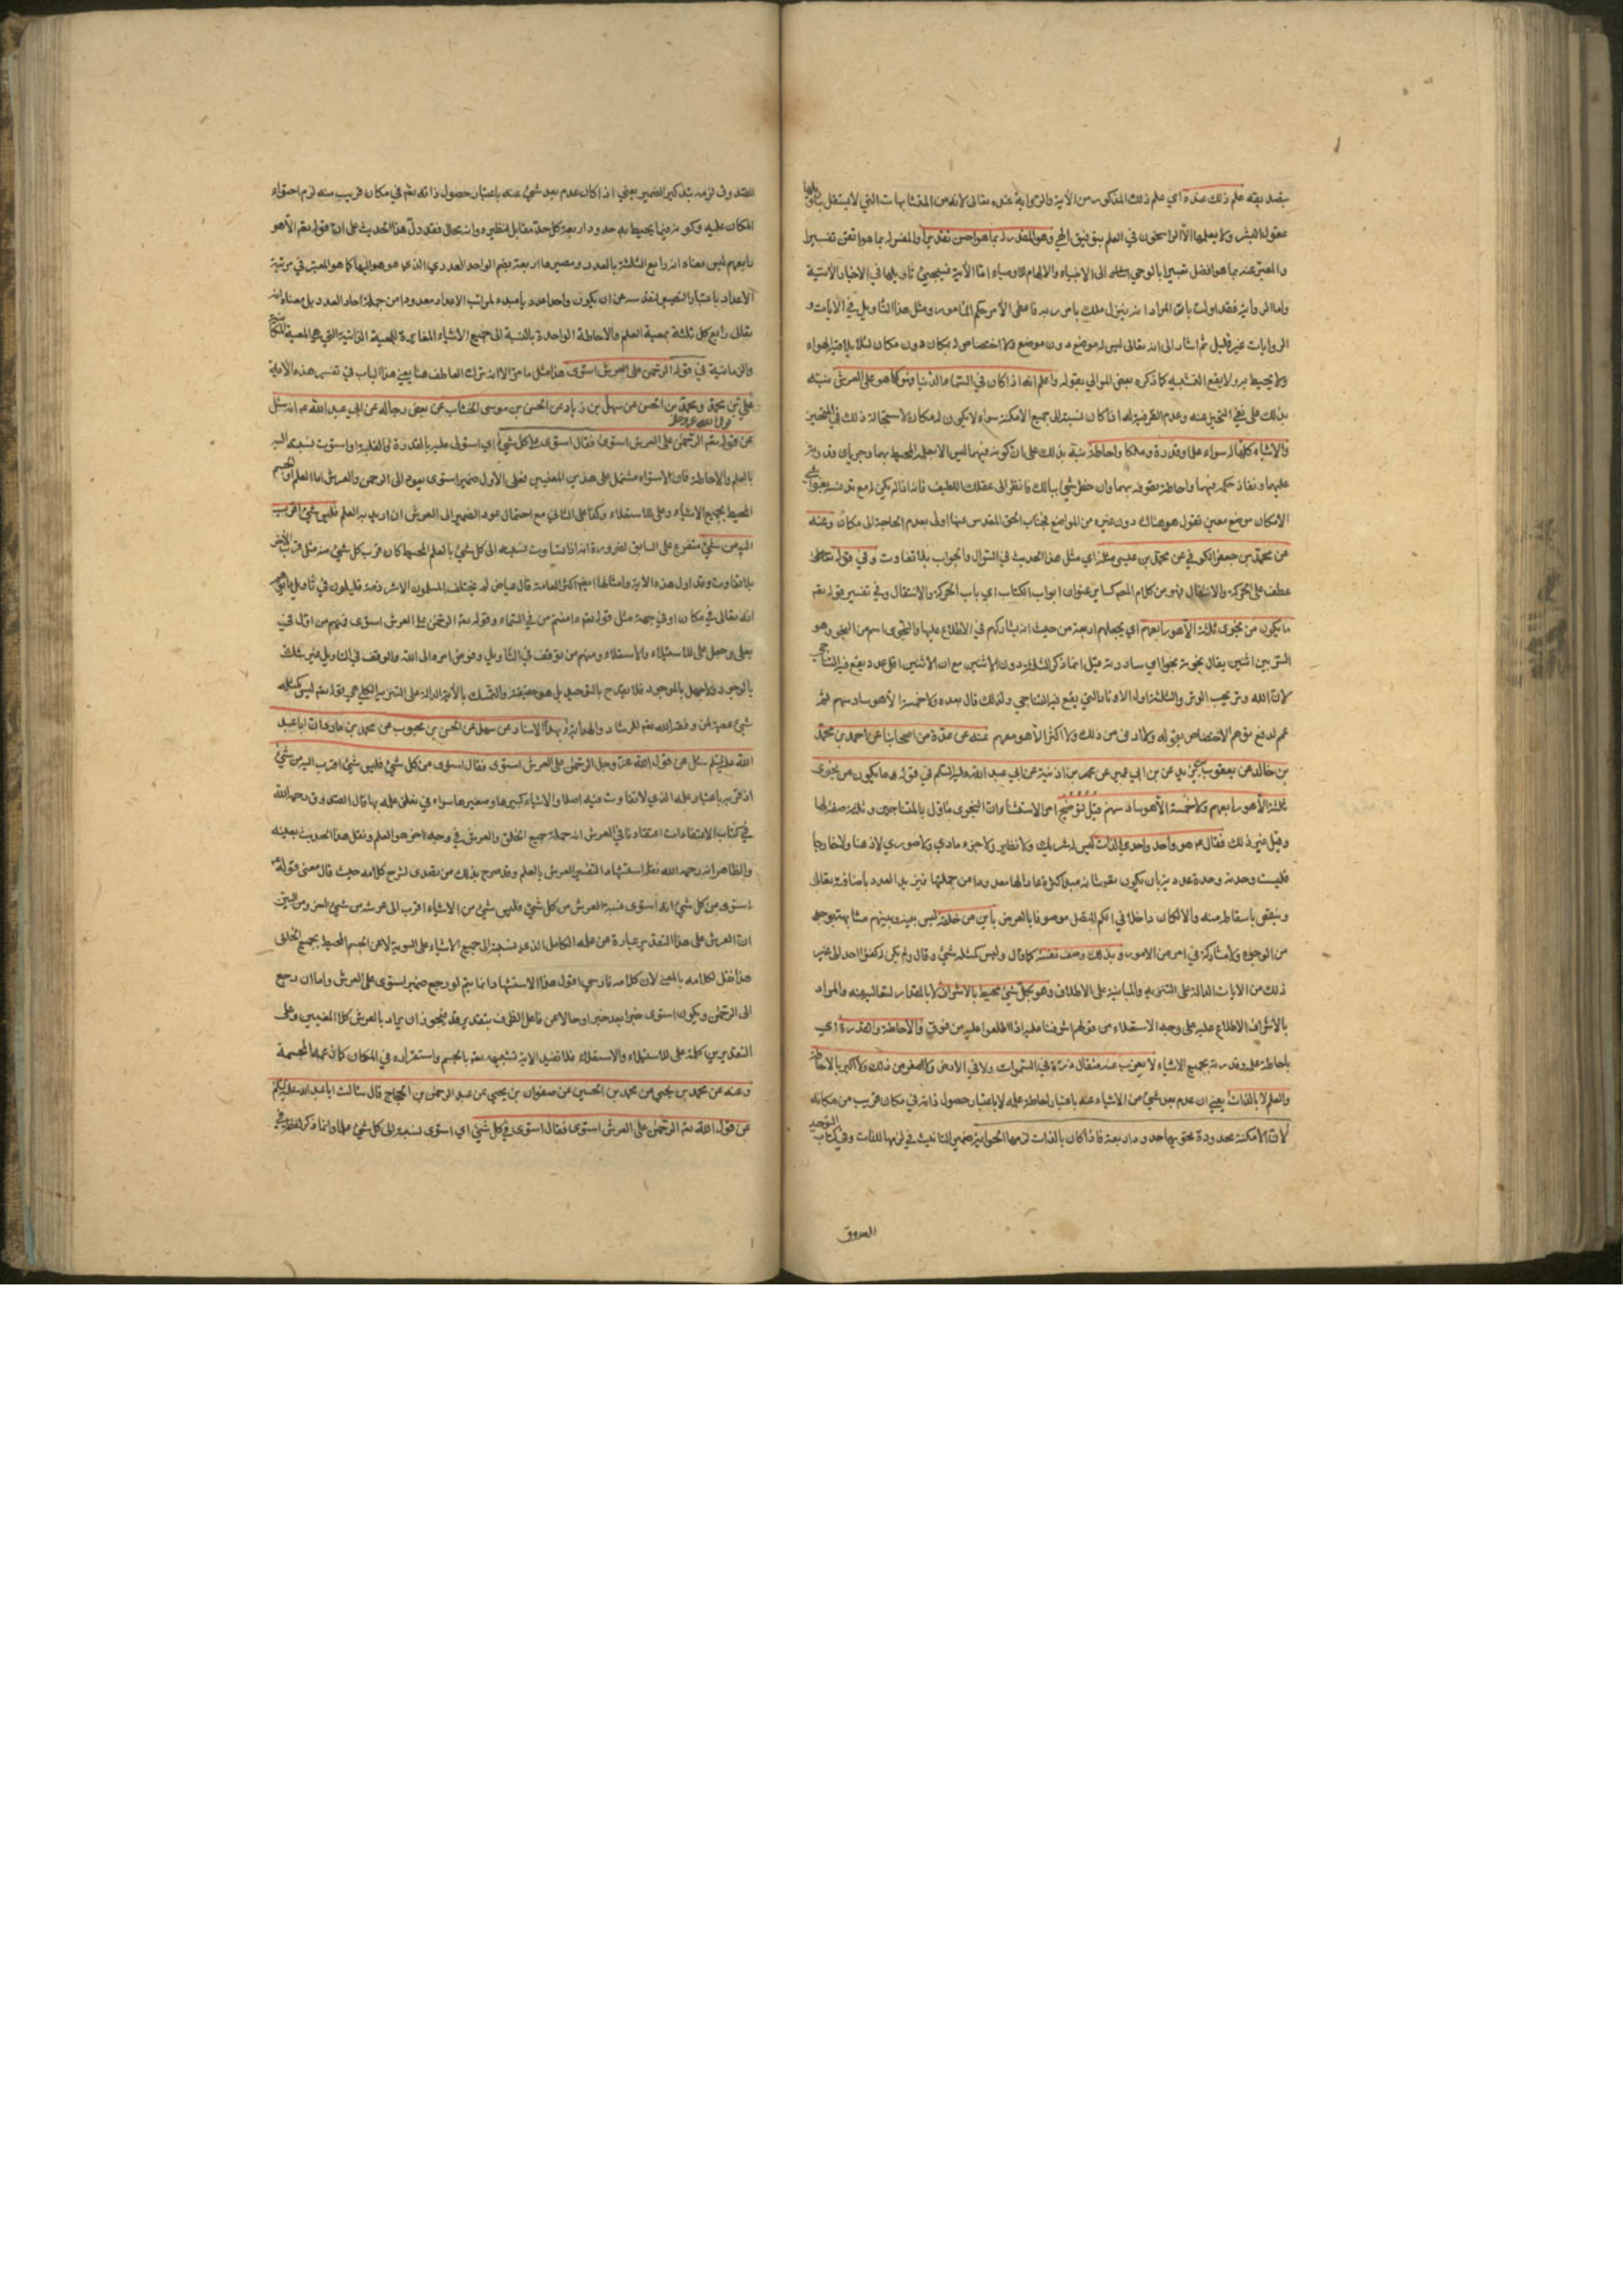 بقصد يقه علم ذلك عنده اي علم ذلك المذكور من الآية والرواية عنده تعالى لانه من المتشابهات التي لا يستقل بتأويلها
عقول البشر ولا يعلمها الا الراسخون في العلم بتوفيق الهي وهو المقدر له بما هو احسن تقديرا والمفسر له بما هو اتقن تفسيرا
والمعبر عنه بما هو افضل تعبيرا بالوحي الى الانبياء والالهام للاوصياء اما الآية فسيجيئ تأويلها في الاخبار الآتية
واما الرواية فقد اولت بان المراد انه ينزل ملك بامر ربه ومثل هذا التأويل في الآيات و
الروايات غير قليل ثم اشار الى انه تعالى ليس له موضع دون موضع ولا اختصاص له بمكان دون مكان
ولا يحيط به ولا يقع التشبيه كما ذكره بعض الموالي بقوله واعلم انه اذا كان في السماء الدنيا فهو كما هو على العرش نبه
بذلك على نفي التحيز عنه وعدم الظرفية له اذا كان نسبته الى جميع الامكنة سواء لا يكون له مكان لاستحالة ذلك في المتحيز
والاشياء كلها له سواء علما وقدرة وملكا واحاطة نبه بذلك على ان كونه فيهما ليس الا بعلمه المحيط بهما وجريان قدرته
عليهما ونفاذ حكمه فيهما واحاطة بهما وان خفي شئ ببالك فانظر الى عقلك اللطيف فانه اذا لم يكن له مع
الامكان موضع معين نقول هو هناك دون غيره من المواضع فجناب الحق المقدس عنها اولى بعدم الحاجة الى مكان وعنه
عن محمد بن جعفر الكوفي عن محمد بن عيسى مثله اي مثل هذا الحديث في السؤال والجواب بلا تفاوت وفي قوله تعالى
عطف على الحركة والانتقال فهو من كلام المصنف عنوان ابواب الكتاب اي باب الحركة والانتقال وفي تفسير قوله تعم
ما يكون من نجوى ثلثة الا هو رابعهم اي يجعلهم اربعة من حيث انه يشاركهم في الاطلاع عليها والنجوى اسم من النجو وهو
السر بين اثنين يقال نجوته نجوا اي ساررته قيل انما ذكر الثلثة دون الاثنين مع ان الاثنين اقل عدد يقع فيه التناجي
لان الله وتر يحب الوتر والثلثة اول الاوتار التي يقع فيه التناجي ولذلك قال بعده ولا خمسة الا هو سادسهم ثم
عمم لدفع توهم الاختصاص بقوله ولا ادنى من ذلك ولا اكثر الا هو معهم عنه عن عدة من اصحابنا عن احمد بن محمد
بن خالد عن يعقوب بن يزيد عن بن ابي عمير عن عمر بن اذينة عن ابي عبد الله عليه السلم في قوله ما يكون من نجوى
ثلثة الا هو رابعهم ولا خمسة الا هو سادسهم قيل اوضح امر الاستثناء ان النجوى مأول بالمتناجين وثلثة صفة لها
وقيل غير ذلك فقال هو واحد واحدي الذات ليس له شريك ولا نظير ولا جزء مادي ولا صوري لا ذهنا ولا خارجا
فليست وحدته وحدة عددية بان يكون مبدأ كثرة عادا لها معدودا من جملتها فيزيد العدد باضافته تعالى
وينقص باسقاطه منه والا لكان داخلا في الكم المنفصل موصوفا بالعرض باين من خلقه ليس بينه وبينهم مشابهة بوجه
من الوجوه ولا مشاركة في امر من الامور وبذلك وصف نفسه كما قال وليس كمثله شئ وقال ولم يكن له كفوا احد الى غير
ذلك من الايات الدالة على التنزيه والمباينة على الاطلاق وهو بكل شئ محيط بالاشراف لا بالمقدار لتعاليه عنه والمراد
بالاشراف الاطلاع عليه على وجه الاستعلاء من قولهم اشرفنا عليه اذا اطلعوا عليه من فوق والاحاطة والقدرة اي
باحاطة علمه وقدرته بجميع الاشياء لا يعزب عنه مثقال ذرة في السموات ولا في الارض ولا اصغر من ذلك ولا اكبر بالاحاطة
والعلم لا بالذات يعني ان عدم بعد شئ من الاشياء عنه باعتبار احاطة علمه لا باعتبار حصول ذاته في مكان قريب من مكانه
لان الامكنة محدودة تحويها حدود اربعة فاذا كان بالذات لزمها الحواية ضمير التأنيث في لزمها للذات وفي كتاب التوحيد
الصدوق
للصدوق لزمه بتذكير الضمير يعني اذا كان عدم بعد شئ عنه باعتبار حصول ذاته تعم في مكان قريب منه لزم احتواء
المكان عليه وكونه فيما يحيط به حدود اربعة كل حد مقابل لنظيره وانه محال فقد دل هذا الحديث على ان قوله تعم الا هو
رابعهم ليس معناه انه رابع الثلثة بالعدد ومصيرها اربعة بضم الواحد العددي الذي هو هو اليها كما هو المعتبر في مرتبة
الاعداد باعتبار التصيير لتقدسه عن ان يكون واحدا عدديا مبدء لمراتب الاعداد معدودا من جملة احاد العدد بل معناه انه
تعالى رابع كل ثلثة بمعية العلم والاحاطة الواحدة بالنسبة الى جميع الاشياء المغايرة للمعية الذاتية التي هي المعية المكانية
والزمانية في قوله الرحمن على العرش استوى هذا مثل ما مر الا انه ترك العاطف هنا يعني هذا الباب في تفسير هذه الآية
علي بن محمد ومحمد بن الحسن عن سهل بن زياد عن الحسن بن موسى الخشاب عن بعض رجاله عن ابي عبد الله ع انه سئل
عن قول الله عز وجل الرحمن على العرش استوى فقال استوى على كل شئ اي استولى عليه بالقدرة والغلبة او استوت نسبته اليه
بالعلم والاحاطة فان الاستواء مشتمل على هذين المعنيين فعلى الاول ضمير استوى يعود الى الرحمن والعرش اما العلم او الجسم
المحيط بجميع الاشياء وعلى للاستعلاء وكذا على الثاني مع احتمال عود الضمير الى العرش ان اريد به العلم فليس شئ اقرب
اليه من شئ متفرع على السابق لضرورة انه اذا تساوت نسبته الى كل شئ بالعلم المحيط كان قرب كل شئ منه مثل قرب الاخر
بلا تفاوت وقد اول هذه الآية وامثالها اكثر العامة قال عياض لم يختلف المسلمون الا شرذمة قليلون في تأويل ما يوهم
انه تعالى في مكان او في جهة مثل قوله تعم ءامنتم من في السماء وقوله تعم الرحمن على العرش استوى فمنهم من اول في
بعلى وجعل على للاستيلاء والاستعلاء ومنهم من توقف في التأويل وفوض امره الى الله والوقف في التاويل غير شك
بالوجود ولا جهل بالموجود فلا يقدح بالتوحيد بل هو حقيقته والتمسك بالآية الدالة على التنزيه الكلي هي قوله تعم ليس كمثله
شئ عصمة لمن وفقه الله تعم للرشاد والهداية وبهذا الاسناد عن سهل عن الحسن بن محبوب عن محمد بن مارد ان ابا عبد
الله عليه السلم سئل عن قول الله عز وجل الرحمن على العرش استوى فقال استوى من كل شئ فليس شئ اقرب اليه من شئ
اذ قربه باعتبار علمه الذي لا تفاوت فيه اصلا والاشياء كبيرها وصغيرها سواء في تعلق علمه بها قال الصدوق رحمه الله
في كتاب الاعتقادات اعتقادنا في العرش انه جملة جميع الخلق والعرش في وجه اخر هو العلم ونقل هذا الحديث بعينه
والظاهر انه رحمه الله نقله استشهادا لتفسير العرش بالعلم وقد صرح بذلك من تصدى لشرح كلامه حيث قال معنى قوله
استوى من كل شئ انه استوى نسبة العرش من كل شئ فليس شئ من الاشياء اقرب الى عرشه من شئ اخر ومن البين
ان العرش على هذا التقدير عبارة عن علمه الكامل الذي نسبته الى جميع الاشياء على السوية لا عن الجسم المحيط بجميع الخلق
هذا نقل لكلامه بالمعنى لان كلامه فارسي اقول هذا الاستشهاد انما يتم لو رجع ضمير استوى على العرش واما ان رجع
الى الرحمن ويكون استوى خبرا بعد خبر او حالا عن فاعل الظرف بتقدير قد فيجوز ان يراد بالعرش كلا المعنيين وعلى
التقديرين كلمة على للاستيلاء والاستعلاء فلا تفيد الاية تشبيهه تعم بالجسم واستقراره في المكان كما زعمه المجسمة
وعنه عن محمد بن يحيى عن محمد بن الحسين عن صفوان بن يحيى عن عبد الرحمن بن الحجاج قال سألت ابا عبد الله عليه السلم
عن قول الله تعم الرحمن على العرش استوى فقال استوى في كل شئ اي استوى نسبته الى كل شئ علما وانما ذكر لفظة في